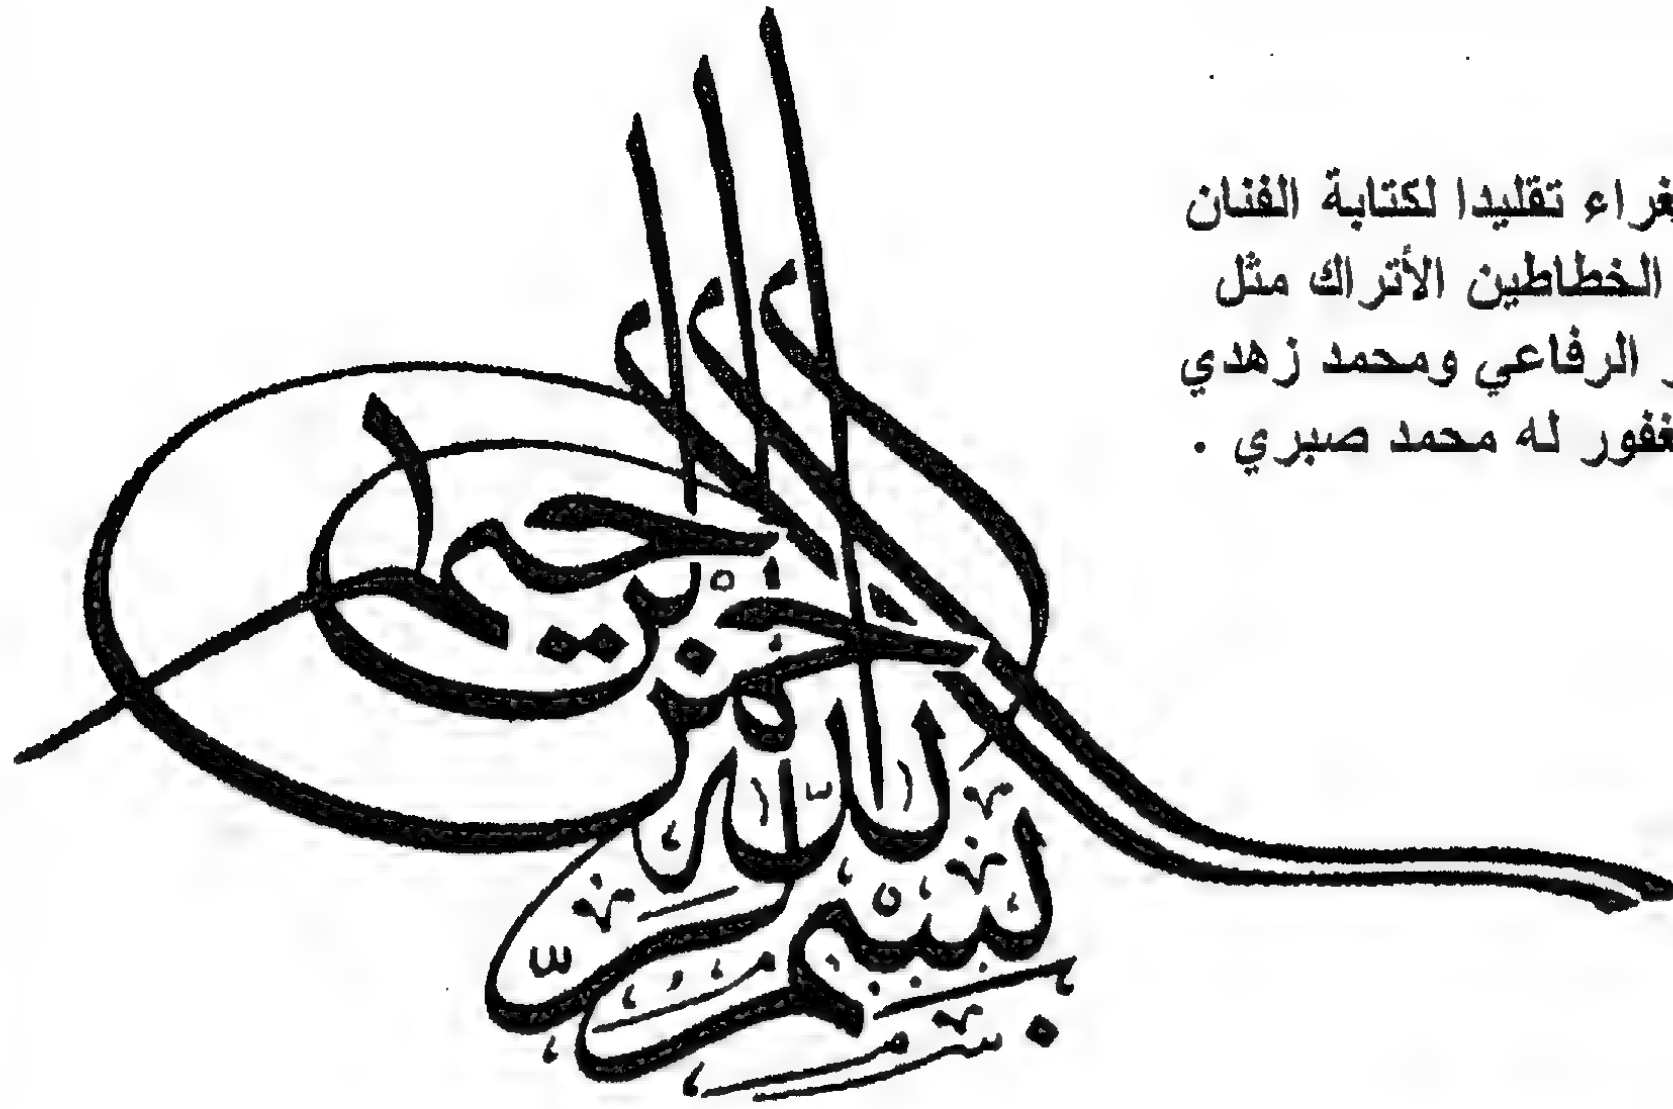 تقليدا لكتابة الفنان
الخطاطين الأتراك مثل
الرفاعي ومحمد زهدي
له محمد صبري .
بسم الله الرحمن الرحيم